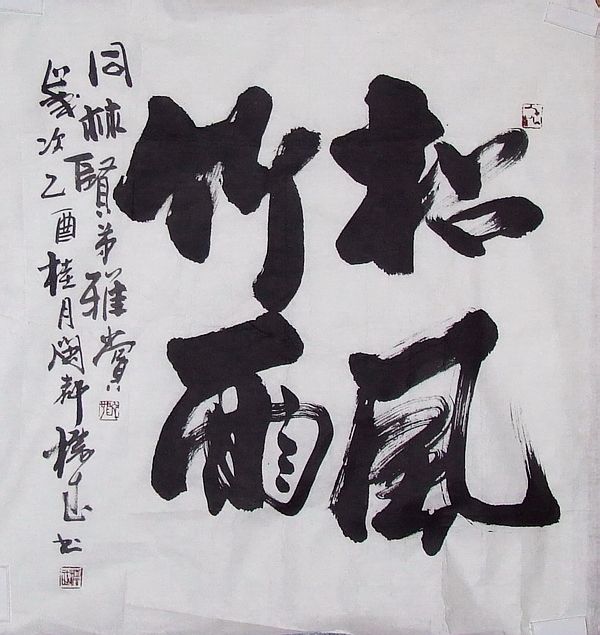 松風
竹雨
同林賢弟雅賞
歲次乙酉桂月閩都
书